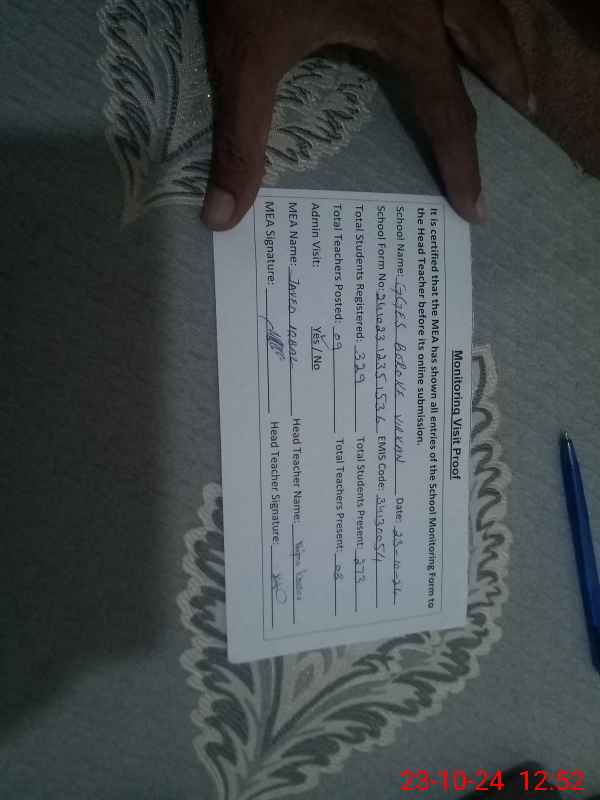 Monitoring Visit Proof
It is certified that the MEA has shown all entries of the School Monitoring Form to
the Head Teacher before its online submission.
School Name: GGES BOROKE VIRKAN Date: 23-10-24
School Form No: EMIS Code: 34130054
Total Students Registered: 329 Total Students Present: 273
Total Teachers Posted: 09 Total Teachers Present: 08
Admin Visit: Yes / No
MEA Name: JAVED IQBAL Head Teacher Name:
MEA Signature: Head Teacher Signature:
23-10-24 12:52